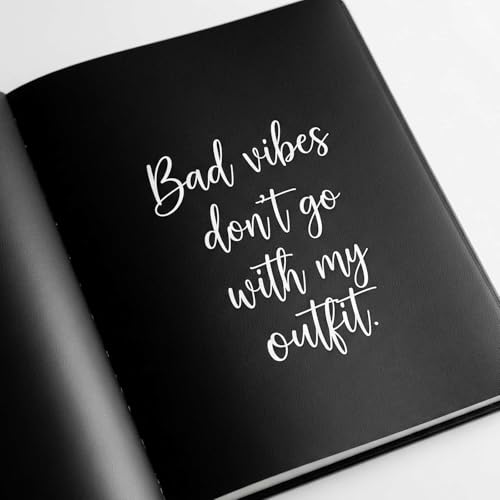 Bad vibes
don't go
with my
outfit.